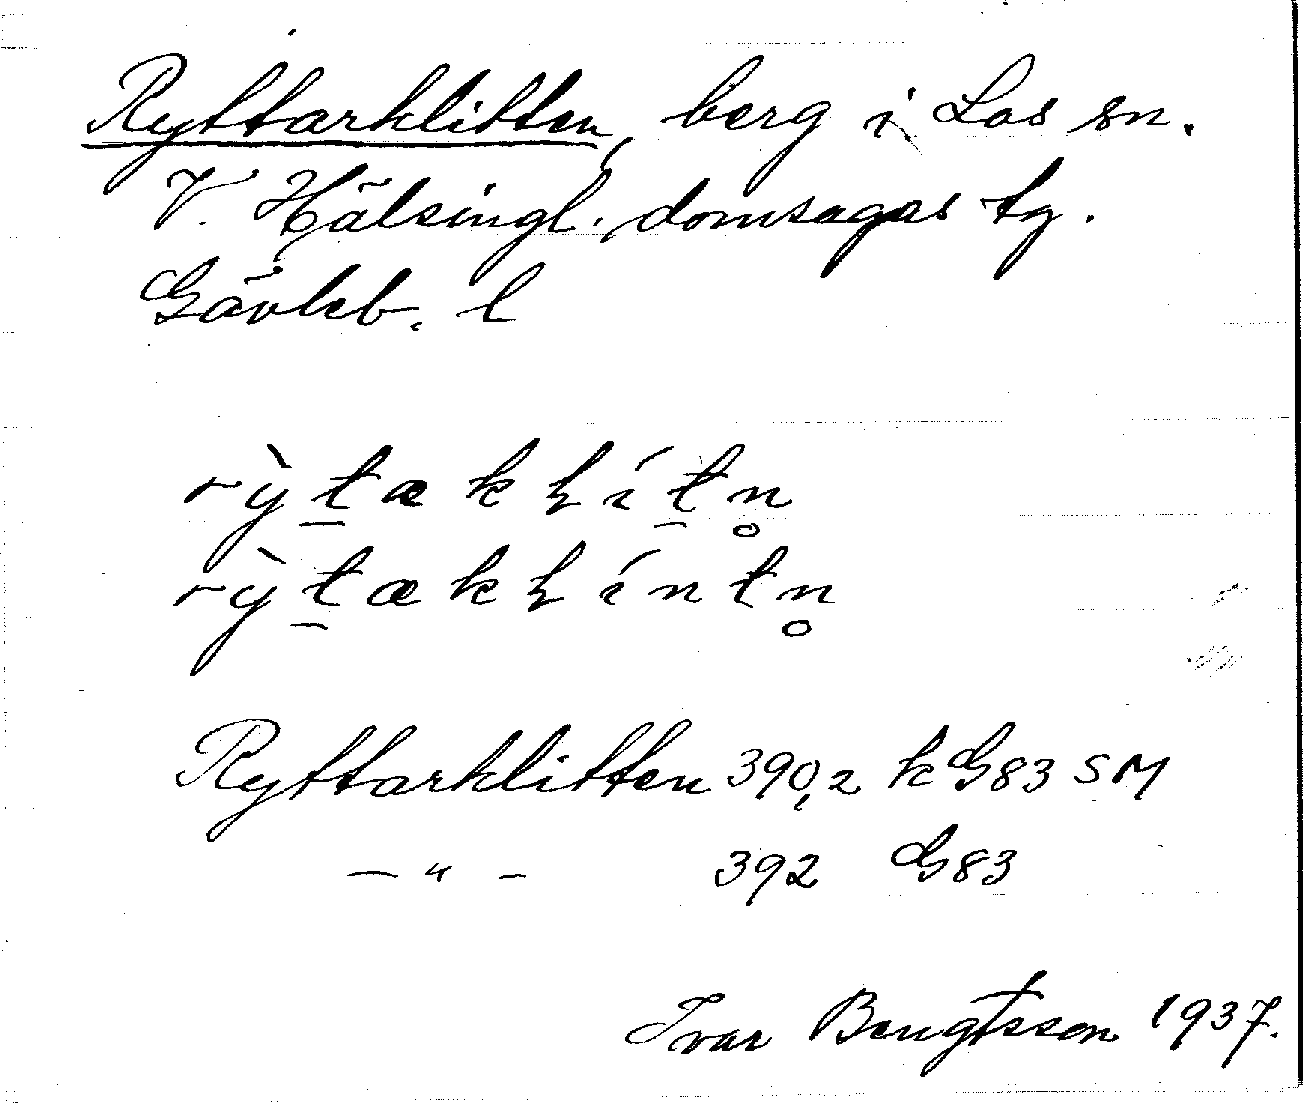 Ryttarklitten, berg i Los sn.
V. Hälsingl. domsagas tg.
Gävleb. l
rỳt̲ækⱡít̲n̥
rỳt̲ækⱡíntn̥
Ryttarklitten 390,2 k G83 SM
— " — 392 G83
Ivar Bengtsson 1937.